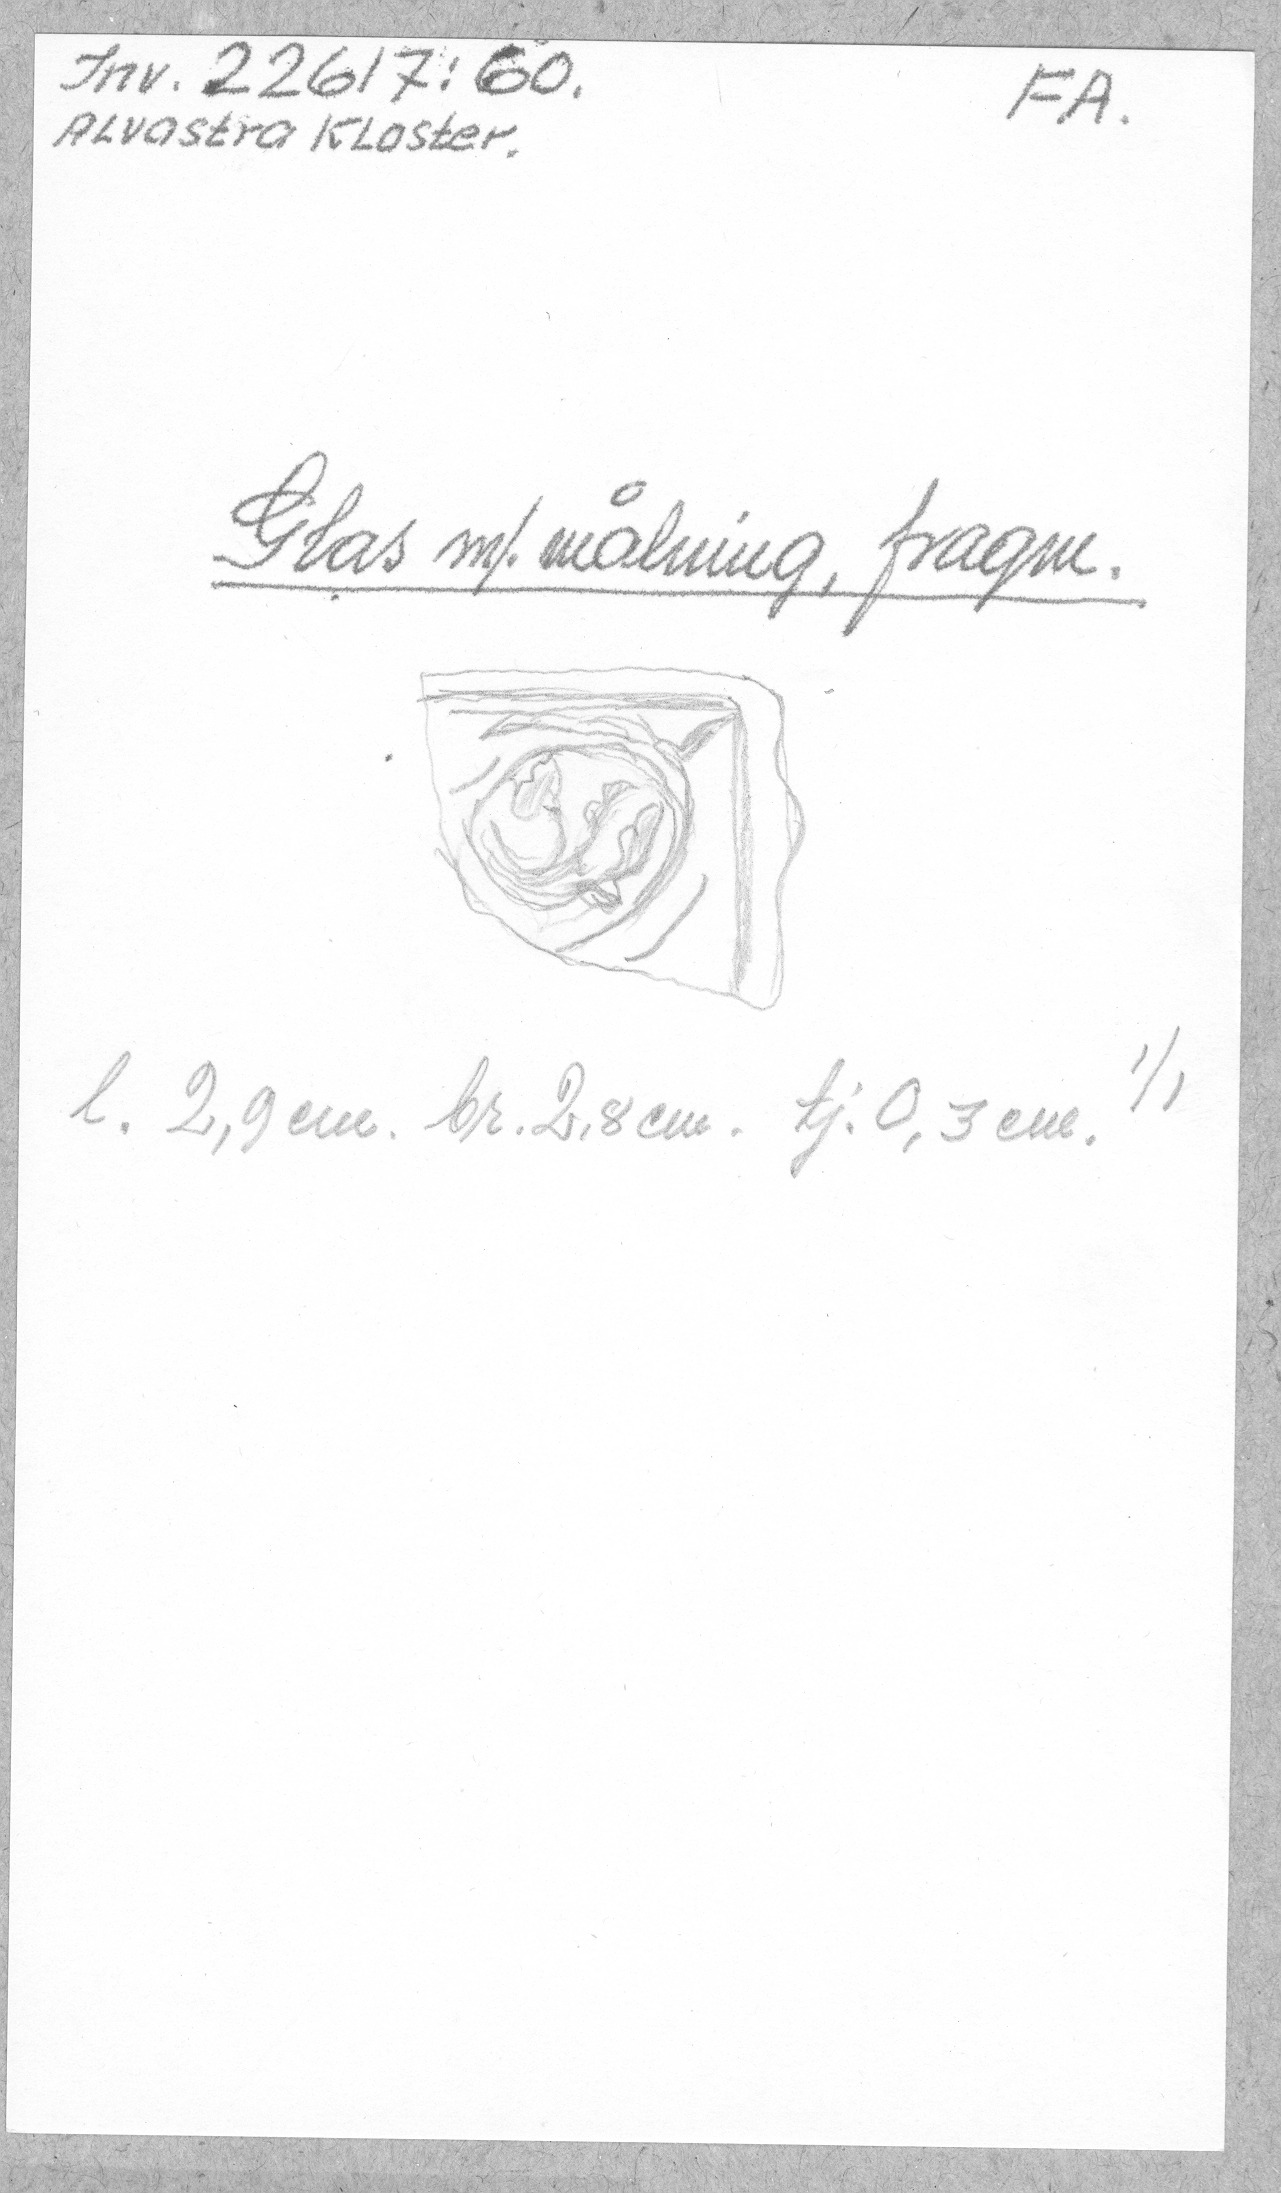 Inv. 22617:60.
FA.
ALvastra KLoster.
Glas m/. målning, fragm.
l. 2,9 cm. br. 2,8 cm. tj. 0,3 cm. 1/1